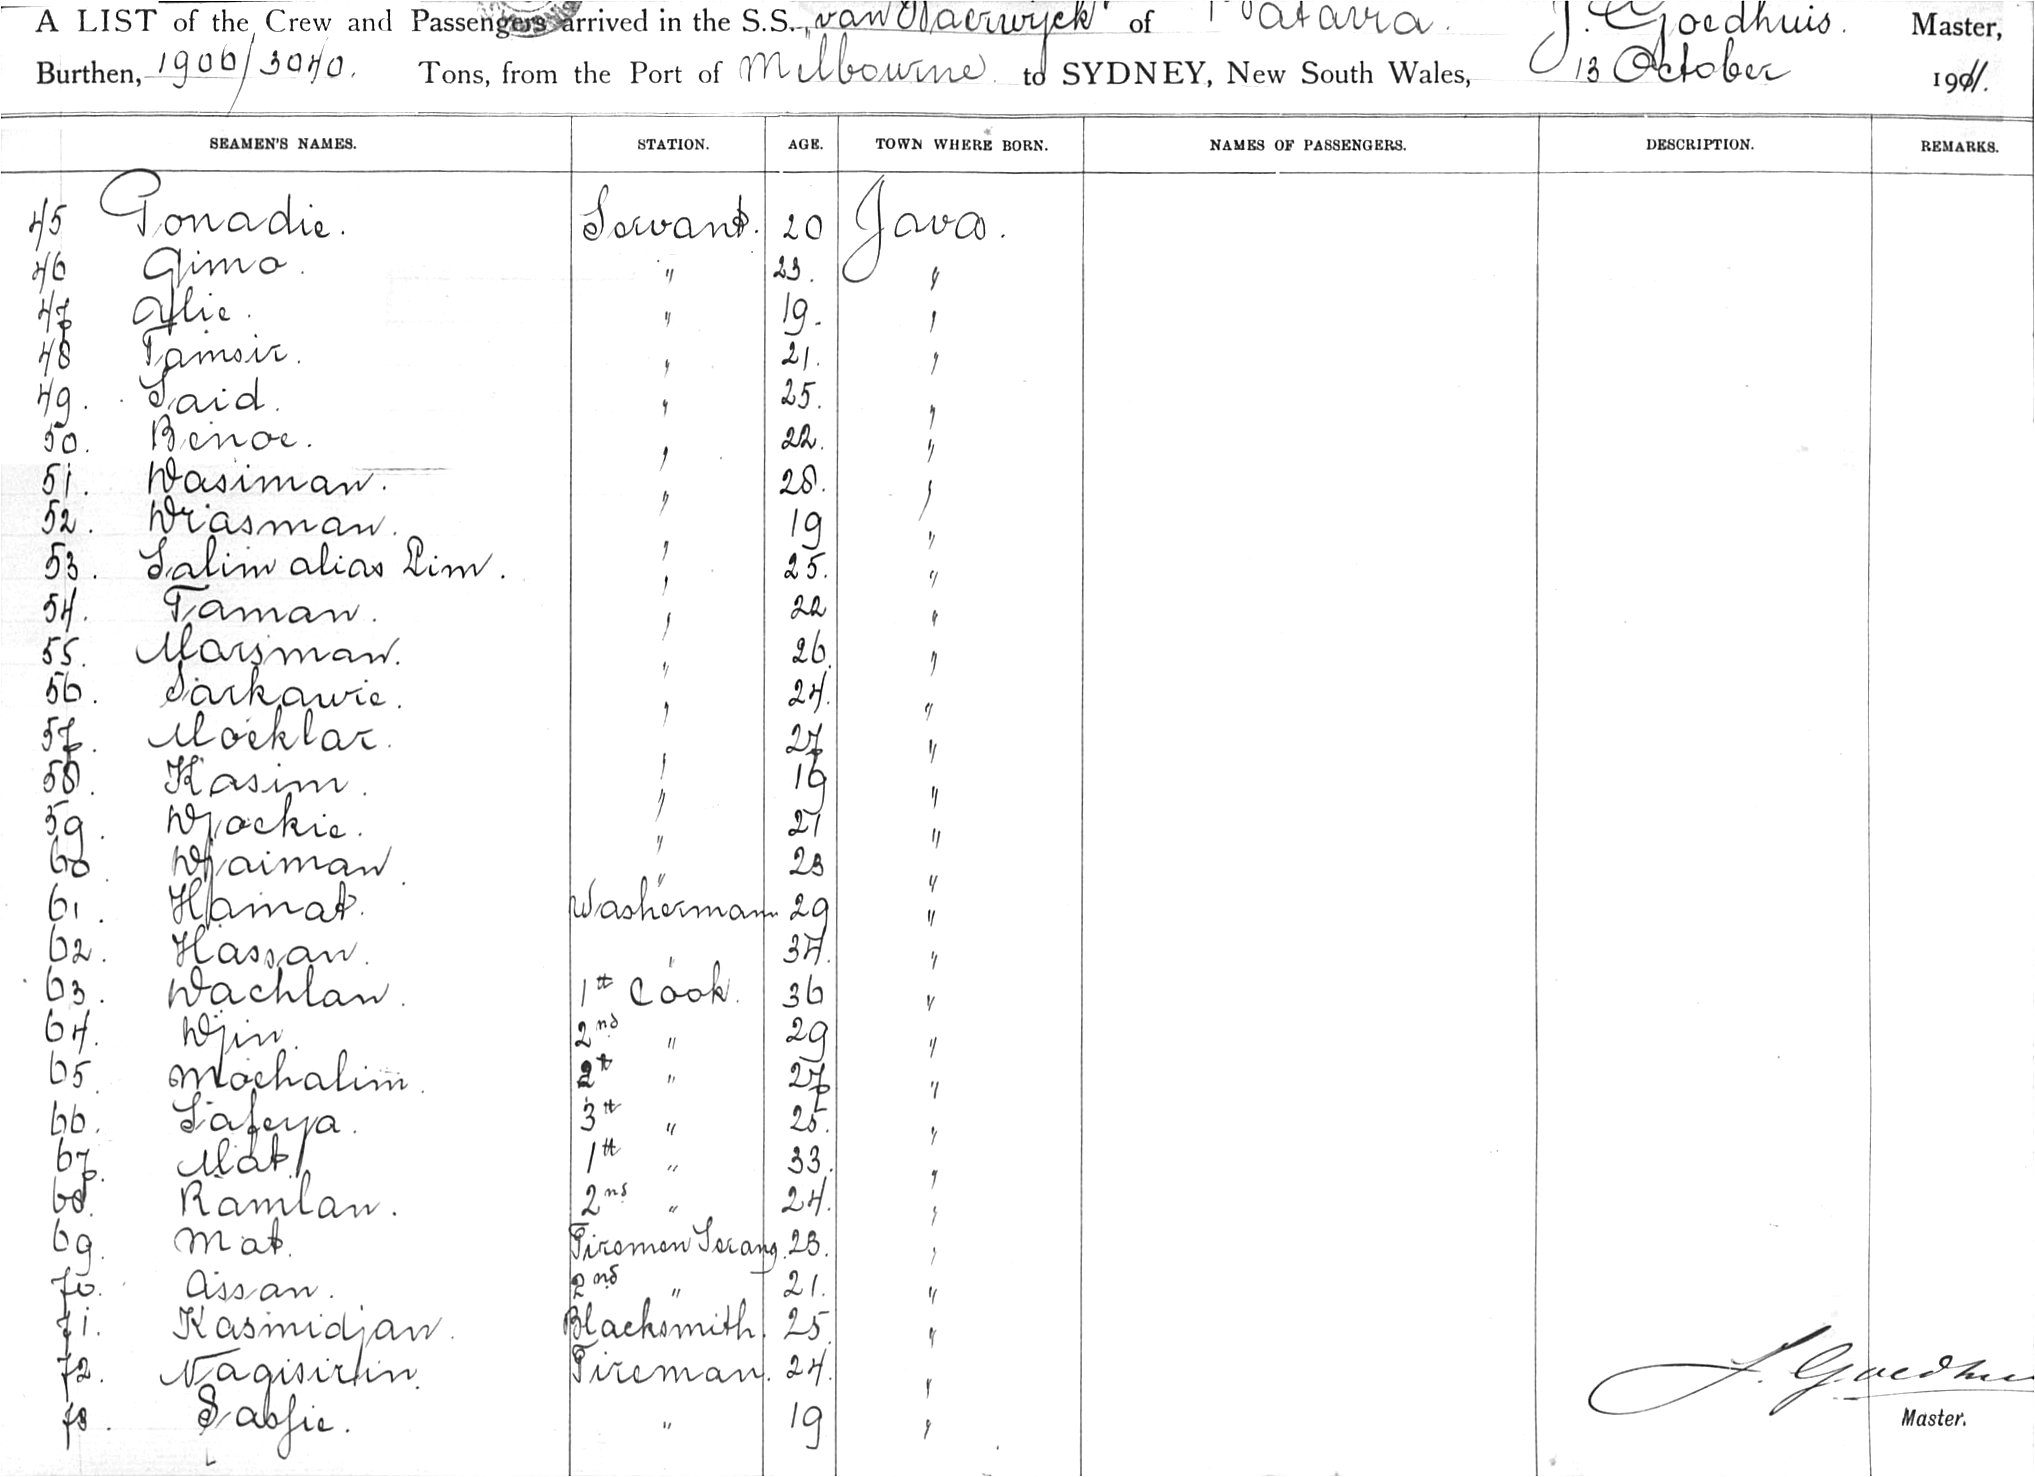 A LIST of the Crew and Passengers arrived in the S.S. „van Waerwijck" of Batavia. J. Goedhuis. Master,
Burthen, 1906/3040. Tons, from the Port of Melbourne to SYDNEY, New South Wales, 13 October 1911.
SEAMEN'S NAMES. STATION. AGE. TOWN WHERE BORN. NAMES OF PASSENGERS. DESCRIPTION. REMARKS.
45 Gonadie. Servant. 20 Java.
46 Gimo. " 23. "
47 Alie. " 19. "
48 Tamsir. " 21. "
49. Said. " 25. "
50. Benoe. " 22. "
51. Wasiman. " 28. "
52. Wiasman. " 19 "
53. Salim alias Lim. " 25. "
54. Taman. " 22 "
55. Marsman. " 26. "
56. Sarkawie. " 24. "
57. Mocklar. " 27 "
58. Kasim. " 19 "
59. Wjockie. " 21 "
60 Wjaiman. " 23 "
61. Hamat. Washerman 29 "
62. Hassan. " 34. "
63. Wachlan. 1tt Cook. 36 "
64. Wjin. 2nd " 29 "
65. Mochalim. 2tt " 27 "
66. Safeya. 3tt " 25. "
67. Mat. 1tt " 33. "
68. Ramlan. 2nd " 24. "
69. Mat. Firemen Serang. 23. "
70. Assan. 2nd " 21. "
71. Kasmidjan. Blacksmith. 25. "
72. Nagisirin. Fireman. 24. "
73. Sabfie. " 19 "
J. Goedhuis
Master.